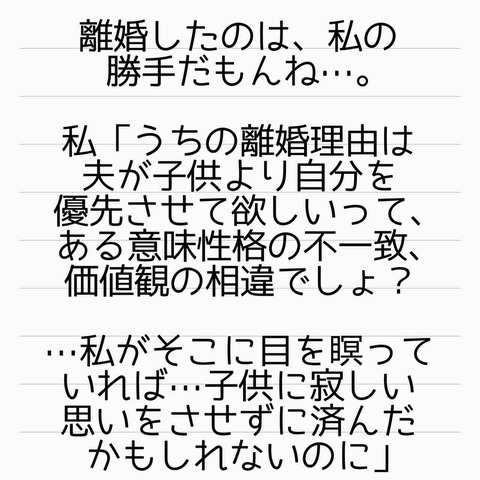 離婚したのは、私の
勝手だもんね…。
私「うちの離婚理由は
夫が子供より自分を
優先させて欲しいって、
ある意味性格の不一致、
価値観の相違でしょ？
…私がそこに目を瞑って
いれば…子供に寂しい
思いをさせずに済んだ
かもしれないのに」